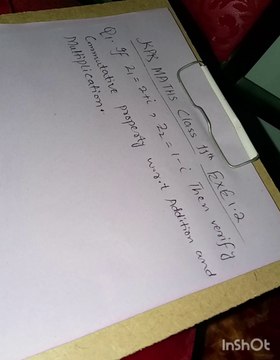 KPK MATHS Class 11th EXE 1.2
Q1. If Z1 = 2+i, Z2 = 1-i Then verify
Commutative property w.r.t Addition and
Multiplication.
InShOt